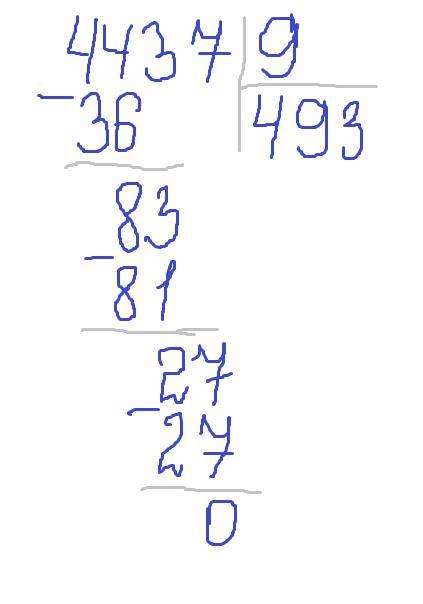 4437 9
-36 493
83
-81
27
-27
0